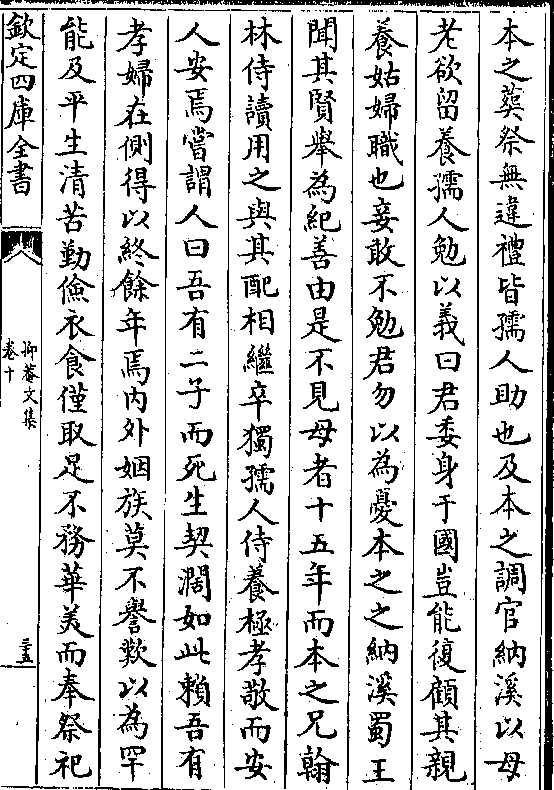 本之葬祭無違禮皆孺人助也及本之調官納溪以母
老欲留養孺人勉以義曰君委身于國豈能復顧其親
養姑婦職也妾敢不勉君勿以為憂本之之納溪蜀王
聞其賢舉為紀善由是不見母者十五年而本之兄翰
林侍讀用之與其配相繼卒獨孺人侍養極孝敬而安
人安焉嘗謂人曰吾有二子而死生契濶如此賴吾有
孝婦在側得以終餘年焉内外姻族莫不譽歎以為罕
能及平生清苦勤儉衣食僅取足不務華美而奉祭祀
欽定四庫全書
抑菴文集
卷十
三五